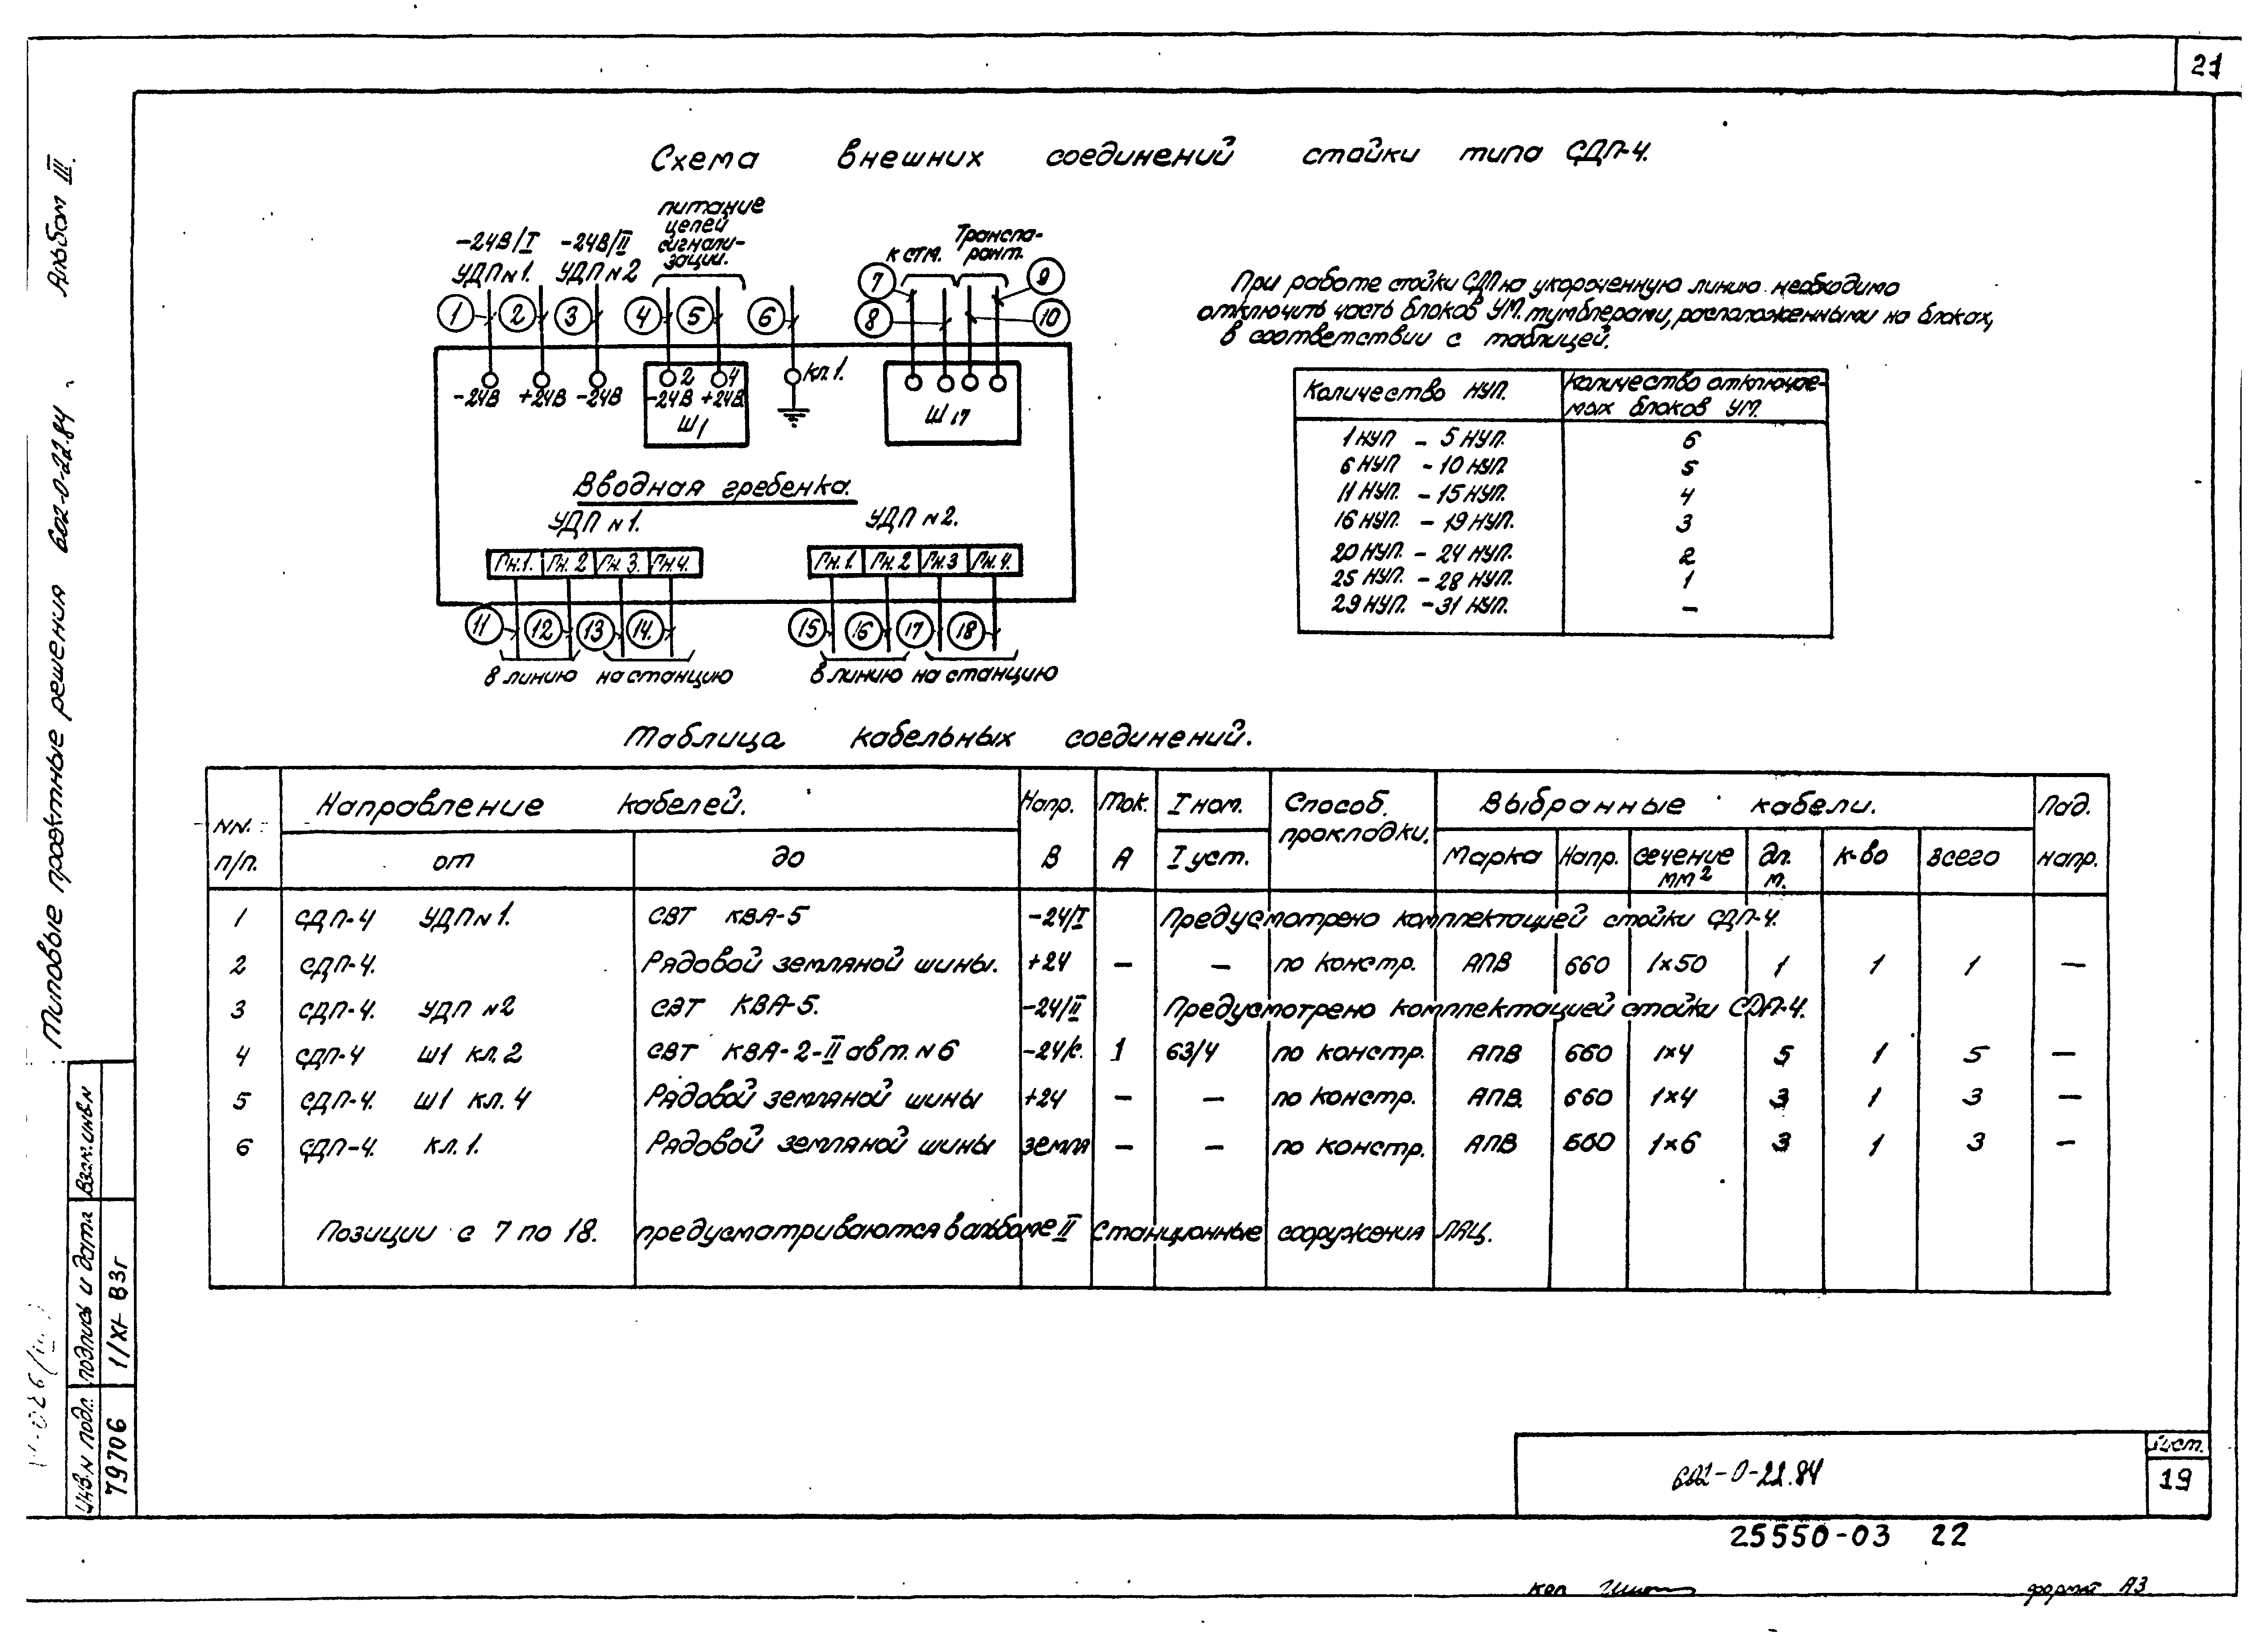 21
Альбом III.
Типовые проектные решения 602-0-22.84
Схема внешних соединений стойки типа СДП-4.
-24В/I
УДП N1.
-24В/II
УДП N2
питание
цепей
сигнали-
зации.
к СТМ.
Транспа-
рант.
1 2 3 4 5 6 7 8 9 10
-24В +24В -24В
2 4
-24В +24В
Ш1
Кл.1.
Ш17
Вводная гребенка.
УДП N1. УДП N2.
Гн.1. Гн.2 Гн.3. Гн.4. Гн.1. Гн.2 Гн.3 Гн.4.
11 12 13 14. 15 16 17 18
в линию на станцию в линию на станцию
При работе стойки СДП на укороченную линию необходимо
отключить часть блоков УМ. тумблерами, расположенными на блоках,
в соответствии с таблицей.
Количество НУП. Количество отключае-
мых блоков УМ.
1 НУП - 5 НУП. 6
6 НУП - 10 НУП 5
11 НУП. - 15 НУП. 4
16 НУП. - 19 НУП. 3
20 НУП. - 24 НУП. 2
25 НУП. - 28 НУП. 1
29 НУП. - 31 НУП. -
Таблица кабельных соединений.
NN. п/п. Направление кабелей. Напр. В Ток. А I ном. I уст. Способ. прокладки. Выбранные кабели. Пад. напр.
от до Марка Напр. сечение мм2 дл. м. к-во всего
1 СДП-4 УДП N1. СВТ КВА-5 -24/I Предусмотрено комплектацией стойки СДП-4.
2 СДП-4. Рядовой земляной шины. +24 - - по констр. АПВ 660 1×50 1 1 1 -
3 СДП-4. УДП N2 СВТ КВА-5. -24/II Предусмотрено комплектацией стойки СДП-4.
4 СДП-4 Ш1 кл.2 СВТ КВА-2-II авт. N6 -24/с. 1 63/4 по констр. АПВ 660 1×4 5 1 5 -
5 СДП-4. Ш1 кл.4 Рядовой земляной шины +24 - - по констр. АПВ. 660 1×4 3 1 3 -
6 СДП-4. Кл.1. Рядовой земляной шины земля - - по констр. АПВ 660 1×6 3 1 3 -
Позиции с 7 по 18. предусматриваются в альбоме II Станционные сооружения ЛАЦ.
Взам.инв.N
Подпись и дата
1/XI- 83г
Инв.N подл.
79706
602-0-22.84
Лист.
19
25550-03 22
кол
формат А3